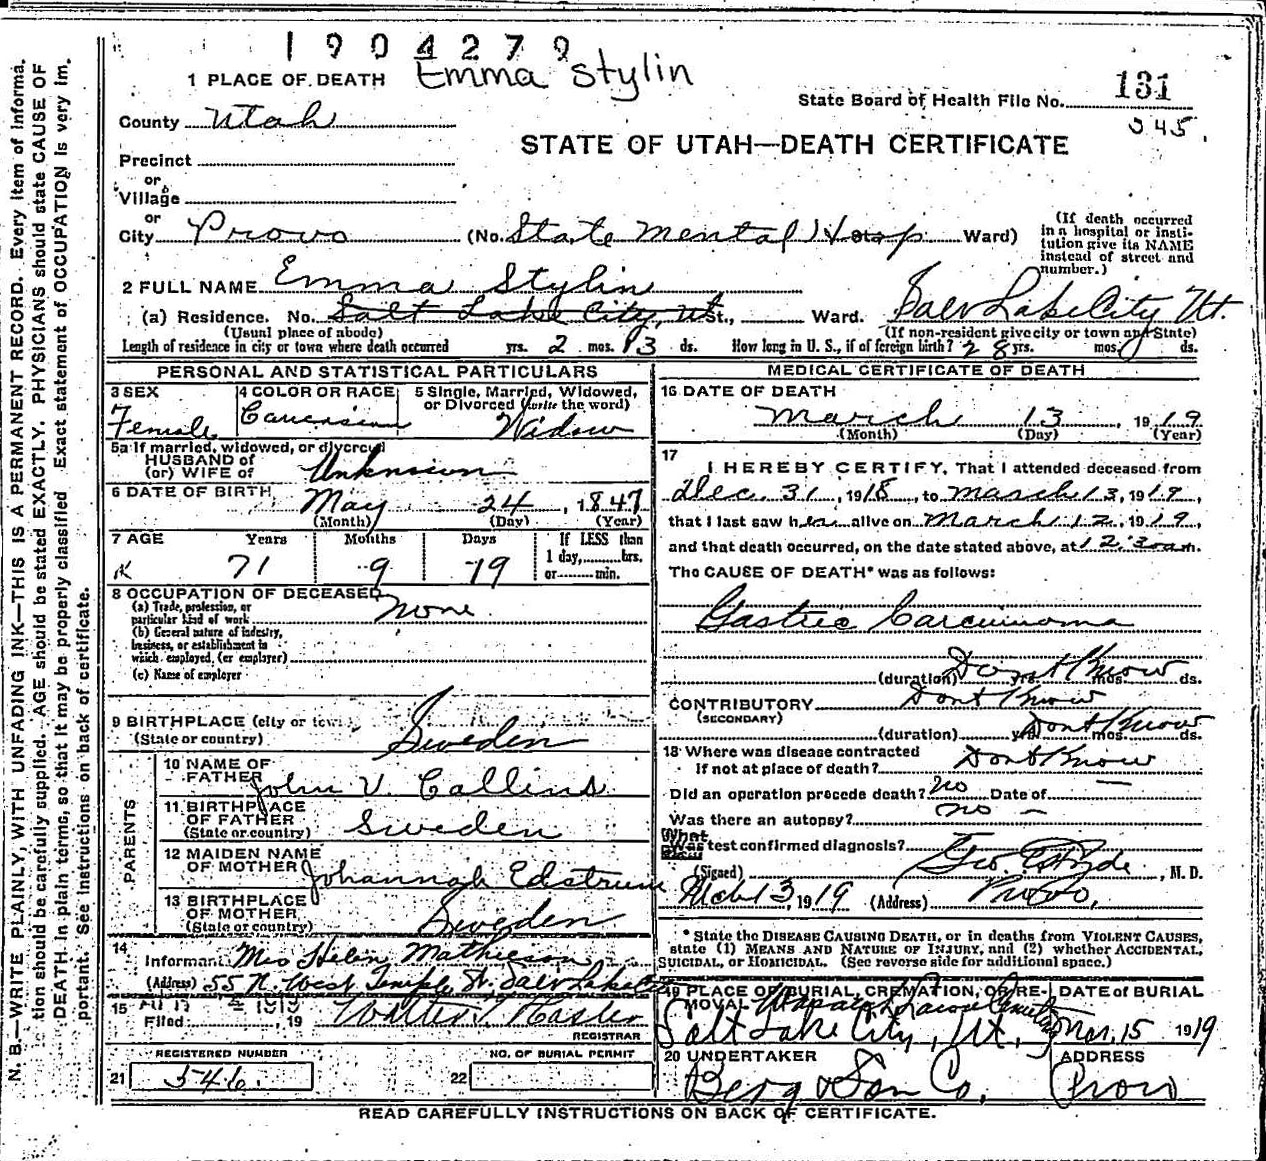 1904279
Emma Stylin
1 PLACE OF DEATH
State Board of Health File No. 131
545.
County Utah
STATE OF UTAH—DEATH CERTIFICATE
Precinct
or
Village
or
City Provo (No. State Mental Hosp Ward)
(If death occurred in a hospital or institution give its NAME instead of street and number.)
2 FULL NAME Emma Stylin
(a) Residence. No. Salt Lake City, Ut St., Ward. Salt Lake City Ut.
(Usual place of abode) (If non-resident give city or town and State)
Length of residence in city or town where death occurred yrs. 2 mos. 13 ds. How long in U. S., if of foreign birth? 28 yrs. mos. ds.
PERSONAL AND STATISTICAL PARTICULARS
3 SEX Female
4 COLOR OR RACE Caucasian
5 Single, Married, Widowed, or Divorced (write the word) Widow
5a If married, widowed, or divorced
HUSBAND of
(or) WIFE of Unknown
6 DATE OF BIRTH May 24, 1847
(Month) (Day) (Year)
7 AGE Years Months Days If LESS than 1 day, hrs. or min.
71 9 19
8 OCCUPATION OF DECEASED
(a) Trade, profession, or particular kind of work None
(b) General nature of industry, business, or establishment in which employed, (or employer)
(c) Name of employer
9 BIRTHPLACE (city or town)
(State or country) Sweden
PARENTS
10 NAME OF FATHER John V. Callins
11 BIRTHPLACE OF FATHER (State or country) Sweden
12 MAIDEN NAME OF MOTHER Johannah Edstrum
13 BIRTHPLACE OF MOTHER (State or country) Sweden
14 Informant Mrs Helen Mathieson
(Address) 55 N. West Temple St. Salt Lake
15 Filed, 19 Walter
REGISTRAR
REGISTERED NUMBER
21 546.
NO. OF BURIAL PERMIT
22
MEDICAL CERTIFICATE OF DEATH
16 DATE OF DEATH
March 13, 1919
(Month) (Day) (Year)
17 I HEREBY CERTIFY, That I attended deceased from
Dec. 31, 1918, to March 13, 1919,
that I last saw her alive on March 12, 1919,
and that death occurred, on the date stated above, at 12:30 a m.
The CAUSE OF DEATH* was as follows:
Gastric Carcuinoma
(duration) Dont Know yrs. mos. ds.
CONTRIBUTORY Dont Know
(SECONDARY)
(duration) Dont Know yrs. mos. ds.
18 Where was disease contracted
If not at place of death? Dont Know
Did an operation precede death? No Date of —
Was there an autopsy? No –
What test confirmed diagnosis?
(Signed) Geo. E. Hyde, M. D.
Mch 13, 1919 (Address) Provo,
* State the DISEASE CAUSING DEATH, or in deaths from VIOLENT CAUSES,
state (1) MEANS AND NATURE OF INJURY, and (2) whether ACCIDENTAL,
SUICIDAL, or HOMICIDAL. (See reverse side for additional space.)
19 PLACE OF BURIAL, CREMATION, OR REMOVAL
Salt Lake City, Ut.
DATE of BURIAL
Mar. 15 1919
20 UNDERTAKER
Berg & Son Co.
ADDRESS
Provo
READ CAREFULLY INSTRUCTIONS ON BACK OF CERTIFICATE.
N. B.—WRITE PLAINLY, WITH UNFADING INK—THIS IS A PERMANENT RECORD. Every item of informa-
tion should be carefully supplied. AGE should be stated EXACTLY. PHYSICIANS should state CAUSE OF
DEATH in plain terms, so that it may be properly classified. Exact statement of OCCUPATION is very im-
portant. See instructions on back of certificate.